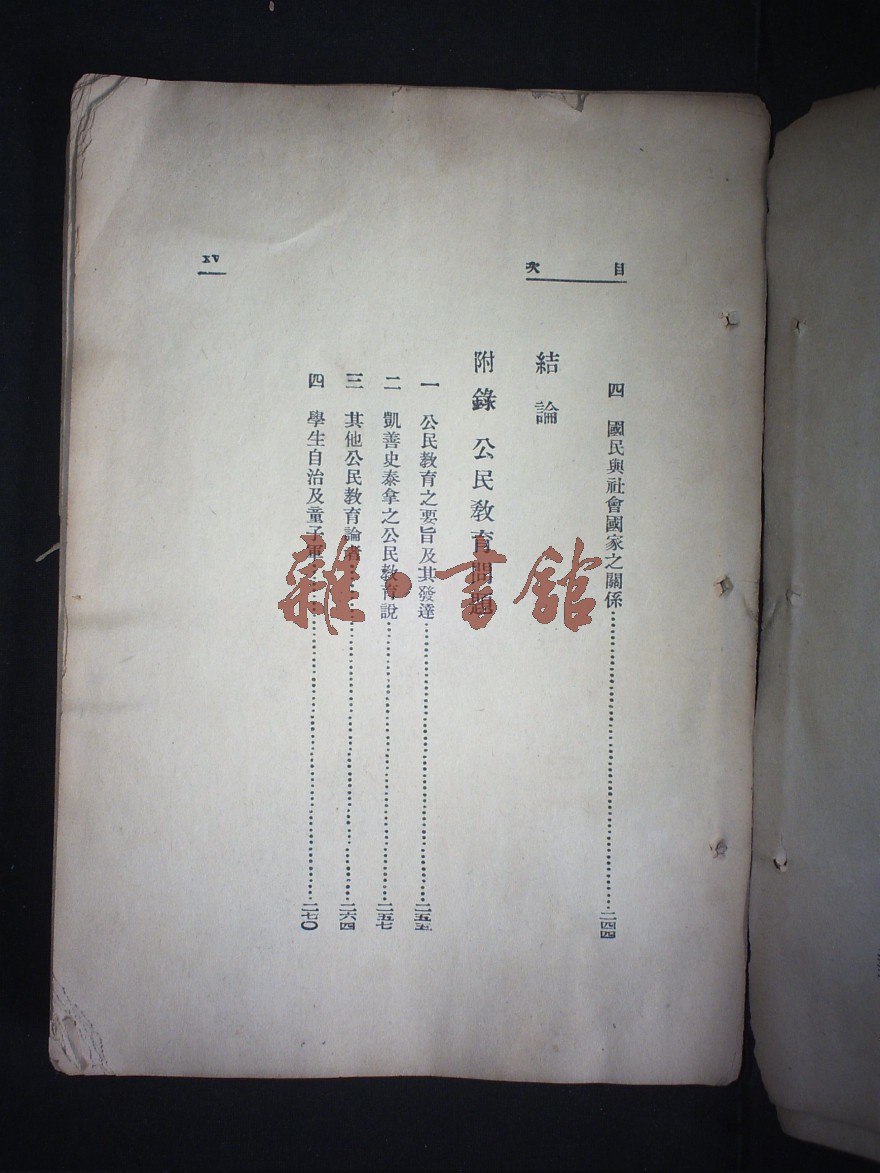 目次
四 國民與社會國家之關係……二四四
結論
附錄 公民教育問題
一 公民教育之要旨及其發達……二五五
二 凱善史泰拿之公民教育說……二五七
三 其他公民教育論者……二六四
四 學生自治及童子軍……二七〇
XV
雜·書舘